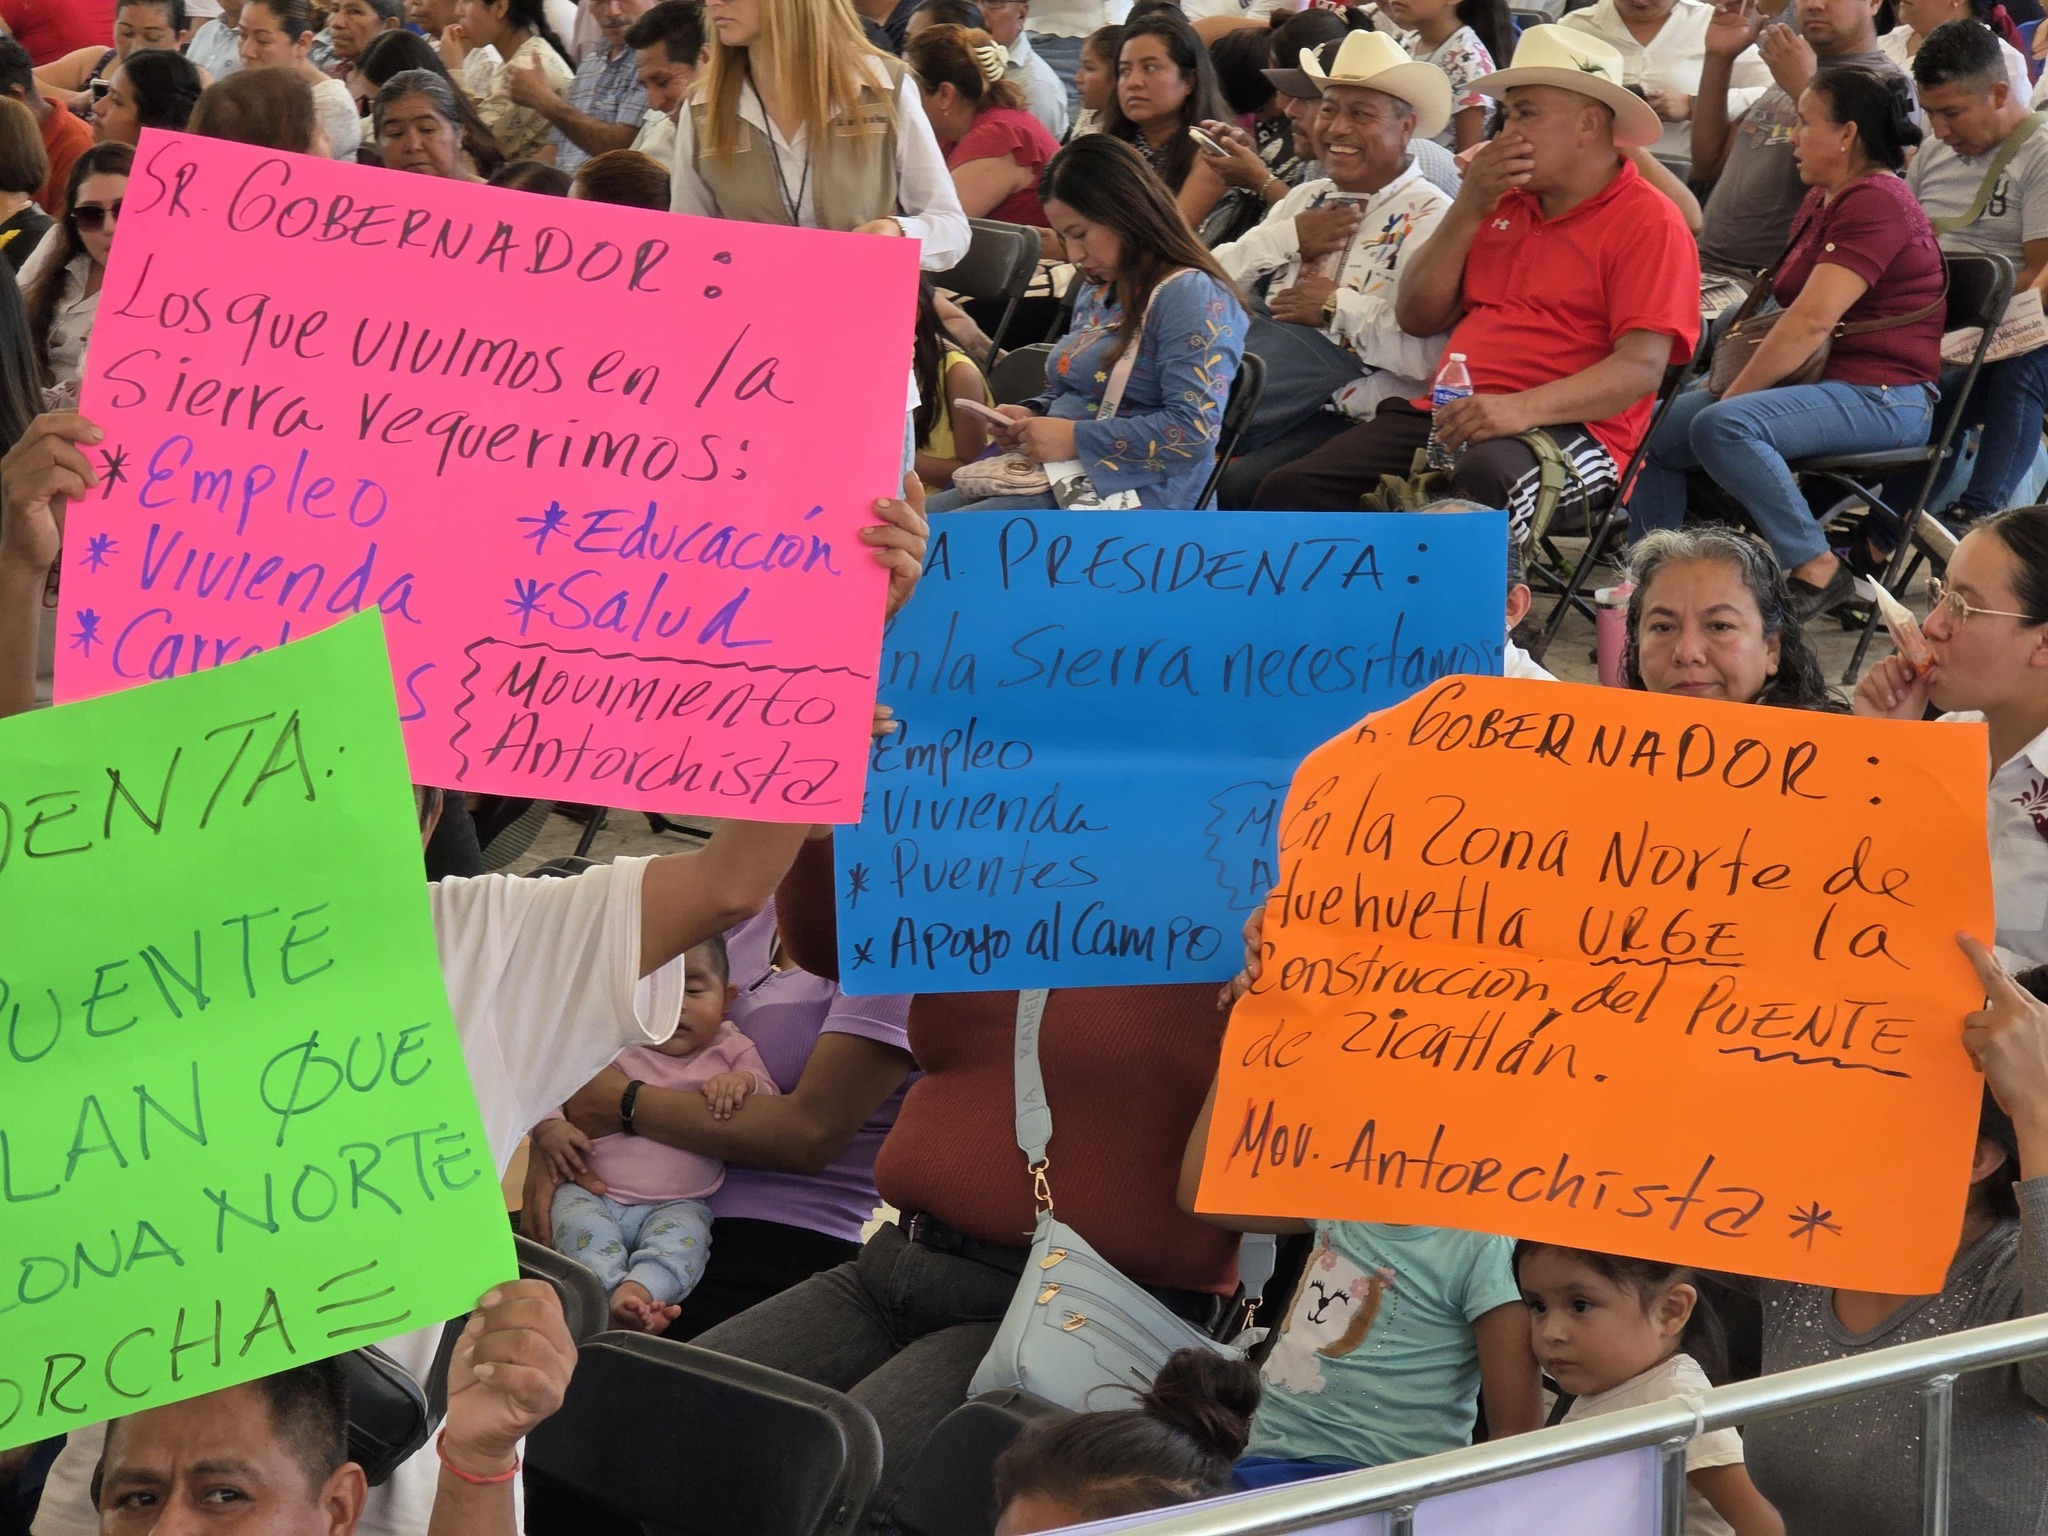 SR. GOBERNADOR:
Los que vivimos en la
Sierra requerimos:
* Empleo
* Vivienda
* Educación
* Salud
Movimiento
Antorchista
PRESIDENTA:
En la Sierra necesitamos:
Empleo
* Vivienda
* Puentes
* Apoyo al Campo
GOBERNADOR:
En la Zona Norte de
Huehuetla URGE la
Construcción del PUENTE
de Zicatlán.
Mov. Antorchista *
DENTA:
PUENTE
LAN QUE
ZONA NORTE
ORCHA
A KAMEL
Michoacán
y la Justicia